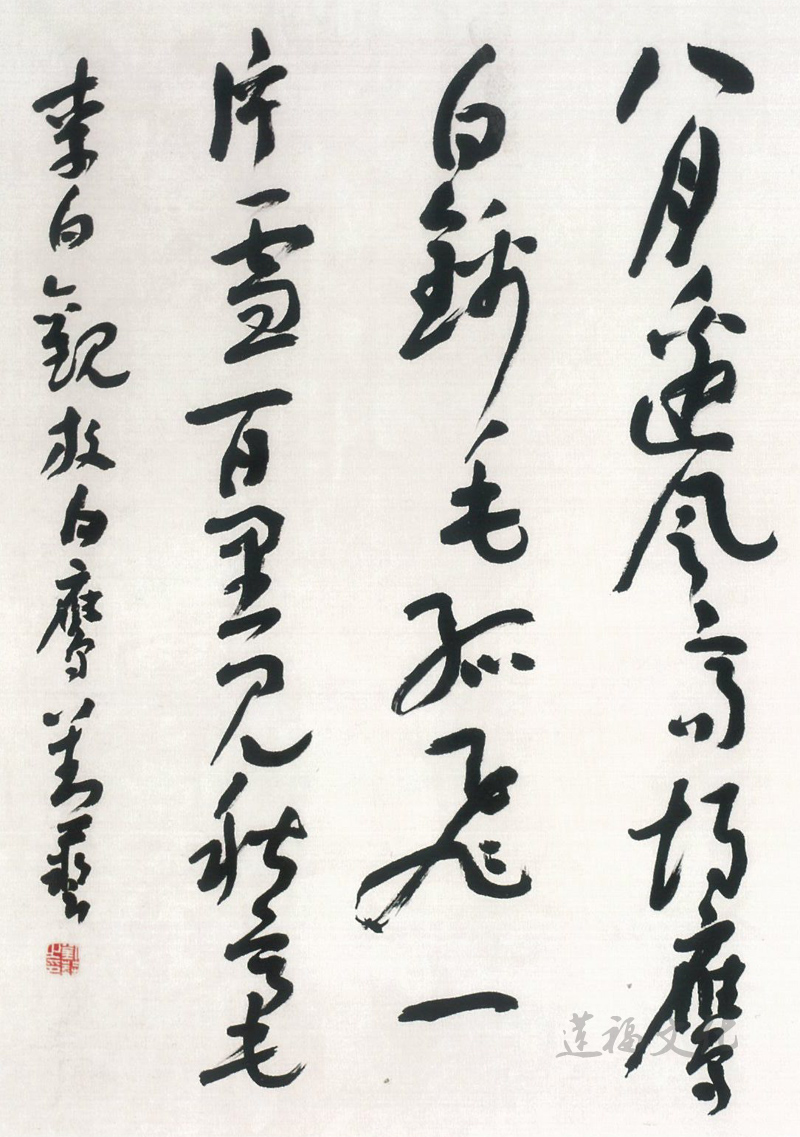 八月邊風高胡鷹
白錦毛孤飛一
片雪百里見秋毫
李白觀放白鷹 劉藝
蓮福文化